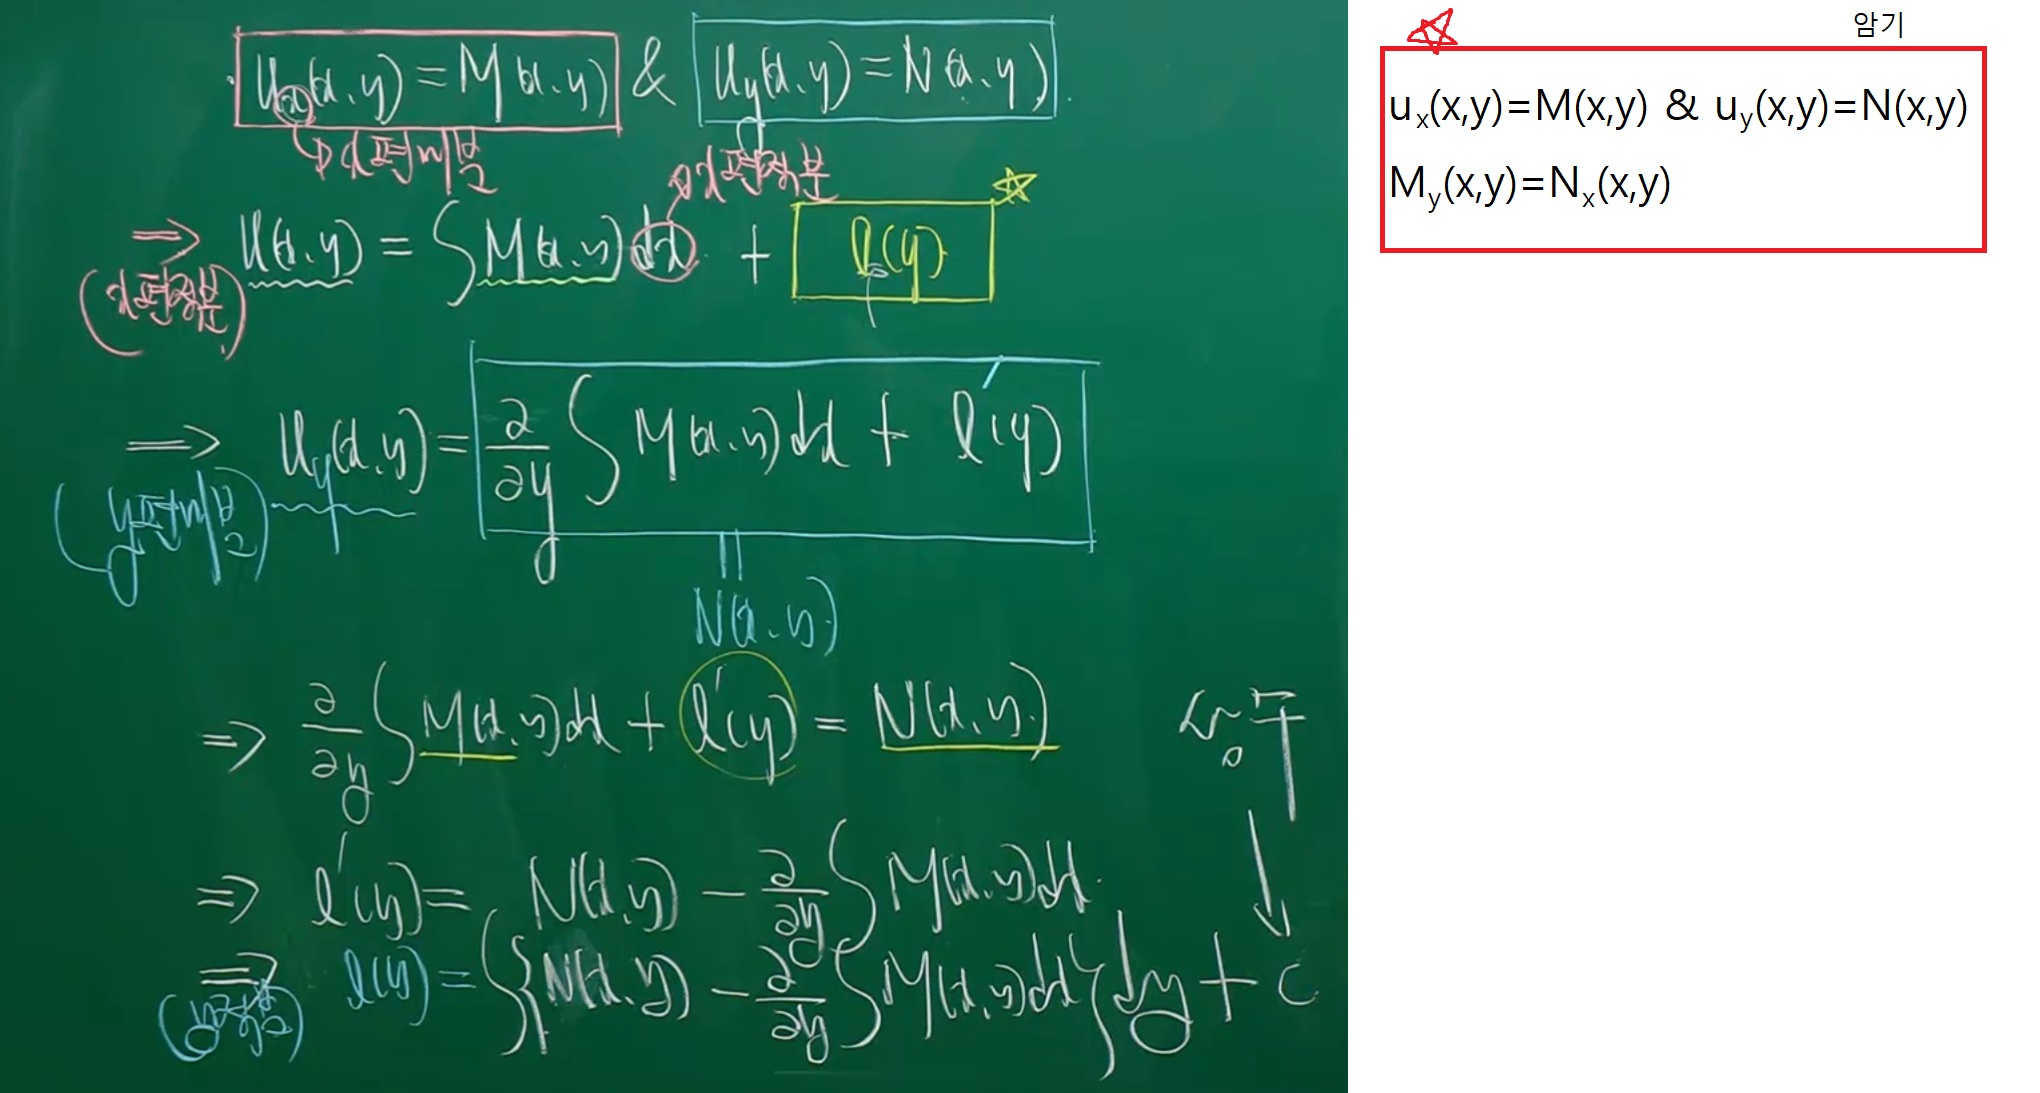 u_x(x,y)=M(x,y) & u_y(x,y)=N(x,y).
x편미분
x편적분
⇒ u(x,y) = ∫M(x,y)dx + l(y)
(x편적분)
⇒ u_y(x,y) = ∂/∂y ∫M(x,y)dx + l'(y)
(y편미분)
||
N(x,y)
⇒ ∂/∂y ∫M(x,y)dx + l'(y) = N(x,y)
⇒ l'(y) = N(x,y) − ∂/∂y ∫M(x,y)dx
⇒ l(y) = ∫{N(x,y) − ∂/∂y ∫M(x,y)dx}dy + C
암기
u_x(x,y)=M(x,y) & u_y(x,y)=N(x,y)
M_y(x,y)=N_x(x,y)